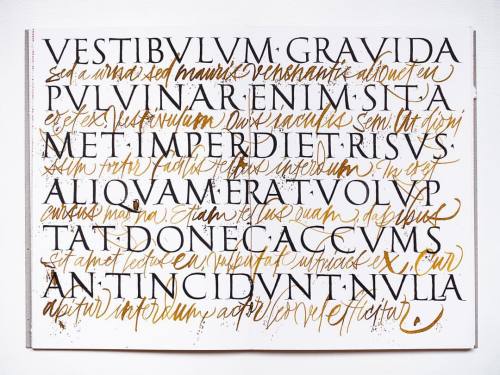 VESTIBVLVM·GRAVIDA
Sed a urna sed mauris venenatis aliquet eu
PVLVINAR·ENIM·SIT·A
eget ex. Vestibulum Duis iaculis sem. Ut digni
MET·IMPERDIET·RISVS·
ssim tortor facilis tellus interdum. In eget
ALIQVAM·ERAT·VOLVP
cursus magna. Etiam tellus quam, dapibus
TAT·DONEC·ACCVMS
sit amet lectus eu, vulputate ultricies ex. Cur
AN·TINCIDVNT·NVLLA
abitur interdum, auctor leo vel efficitur.